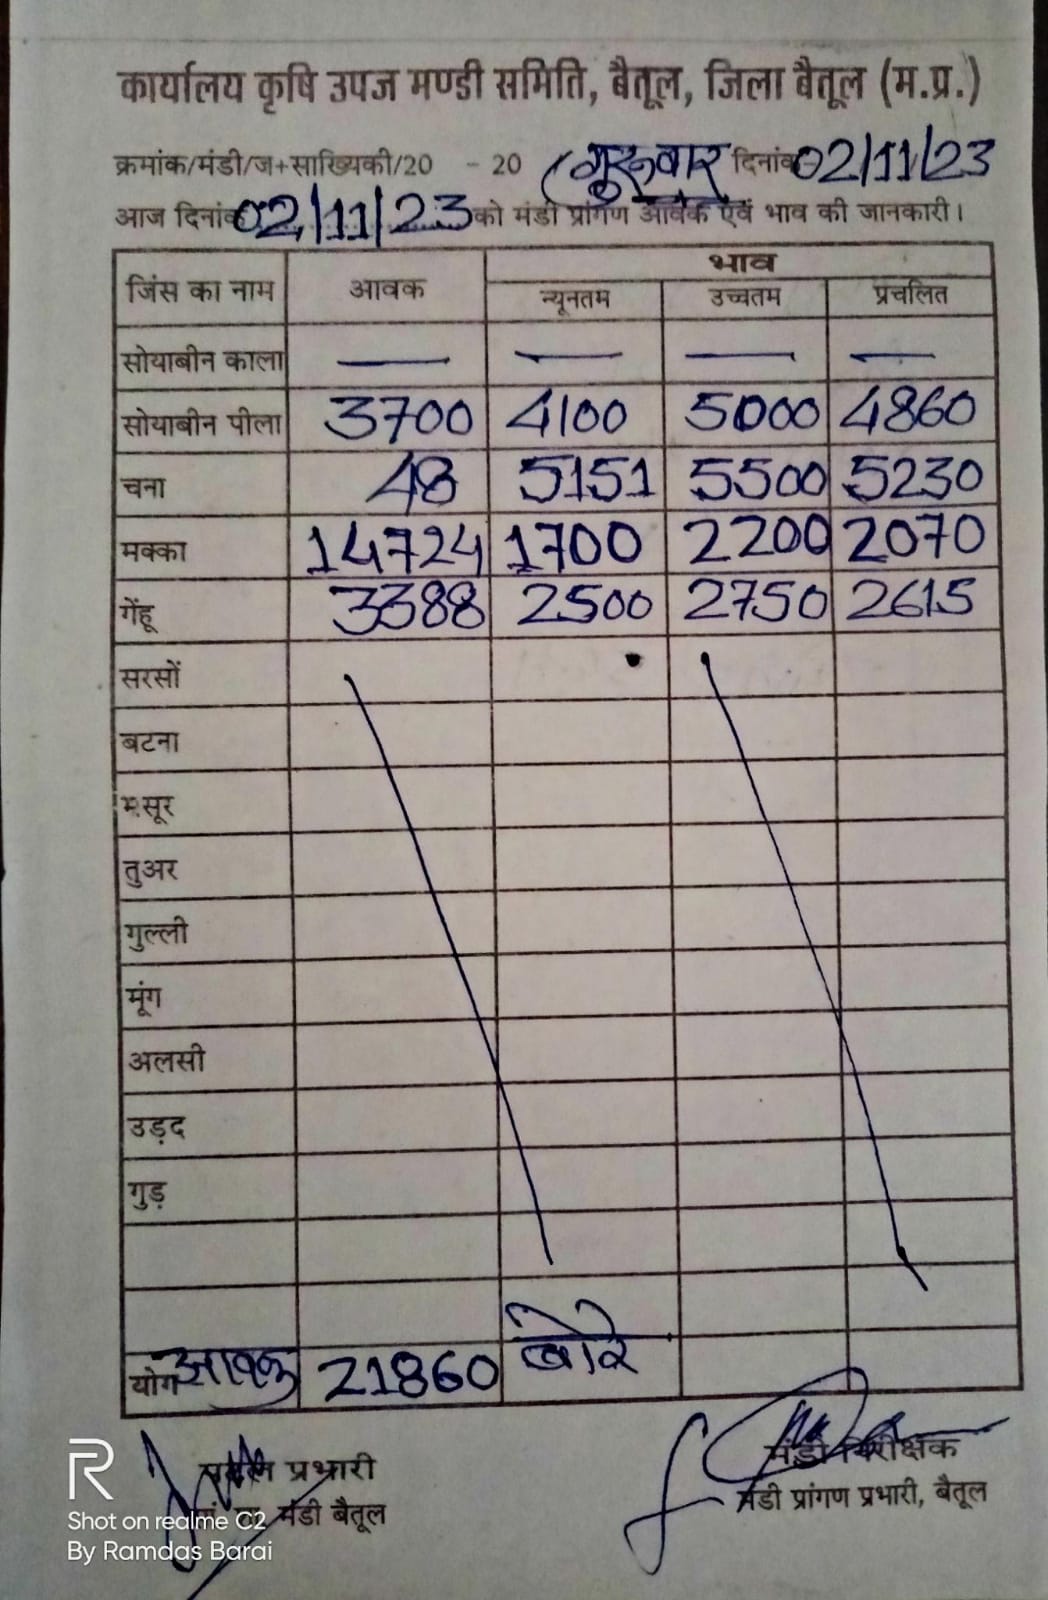 कार्यालय कृषि उपज मण्डी समिति, बैतूल, जिला बैतूल (म.प्र.)
क्रमांक/मंडी/ज+साख्यिकी/20 - 20 (गुरूवार दिनांक 02/11/23
आज दिनांक 02/11/23 को मंडी प्रांगण आवक एवं भाव की जानकारी।
जिंस का नाम आवक भाव
न्यूनतम उच्चतम प्रचलित
सोयाबीन काला — — — —
सोयाबीन पीला 3700 4100 5000 4860
चना 48 5151 5500 5230
मक्का 14724 1700 2200 2070
गेंहू 3388 2500 2750 2615
सरसों
बटना
मसूर
तुअर
गुल्ली
मूंग
अलसी
उड़द
गुड़
योग आवक 21860 बोरे
प्रभारी मंडी निरीक्षक
मंडी बैतूल मंडी प्रांगण प्रभारी, बैतूल
R
Shot on realme C2
By Ramdas Barai